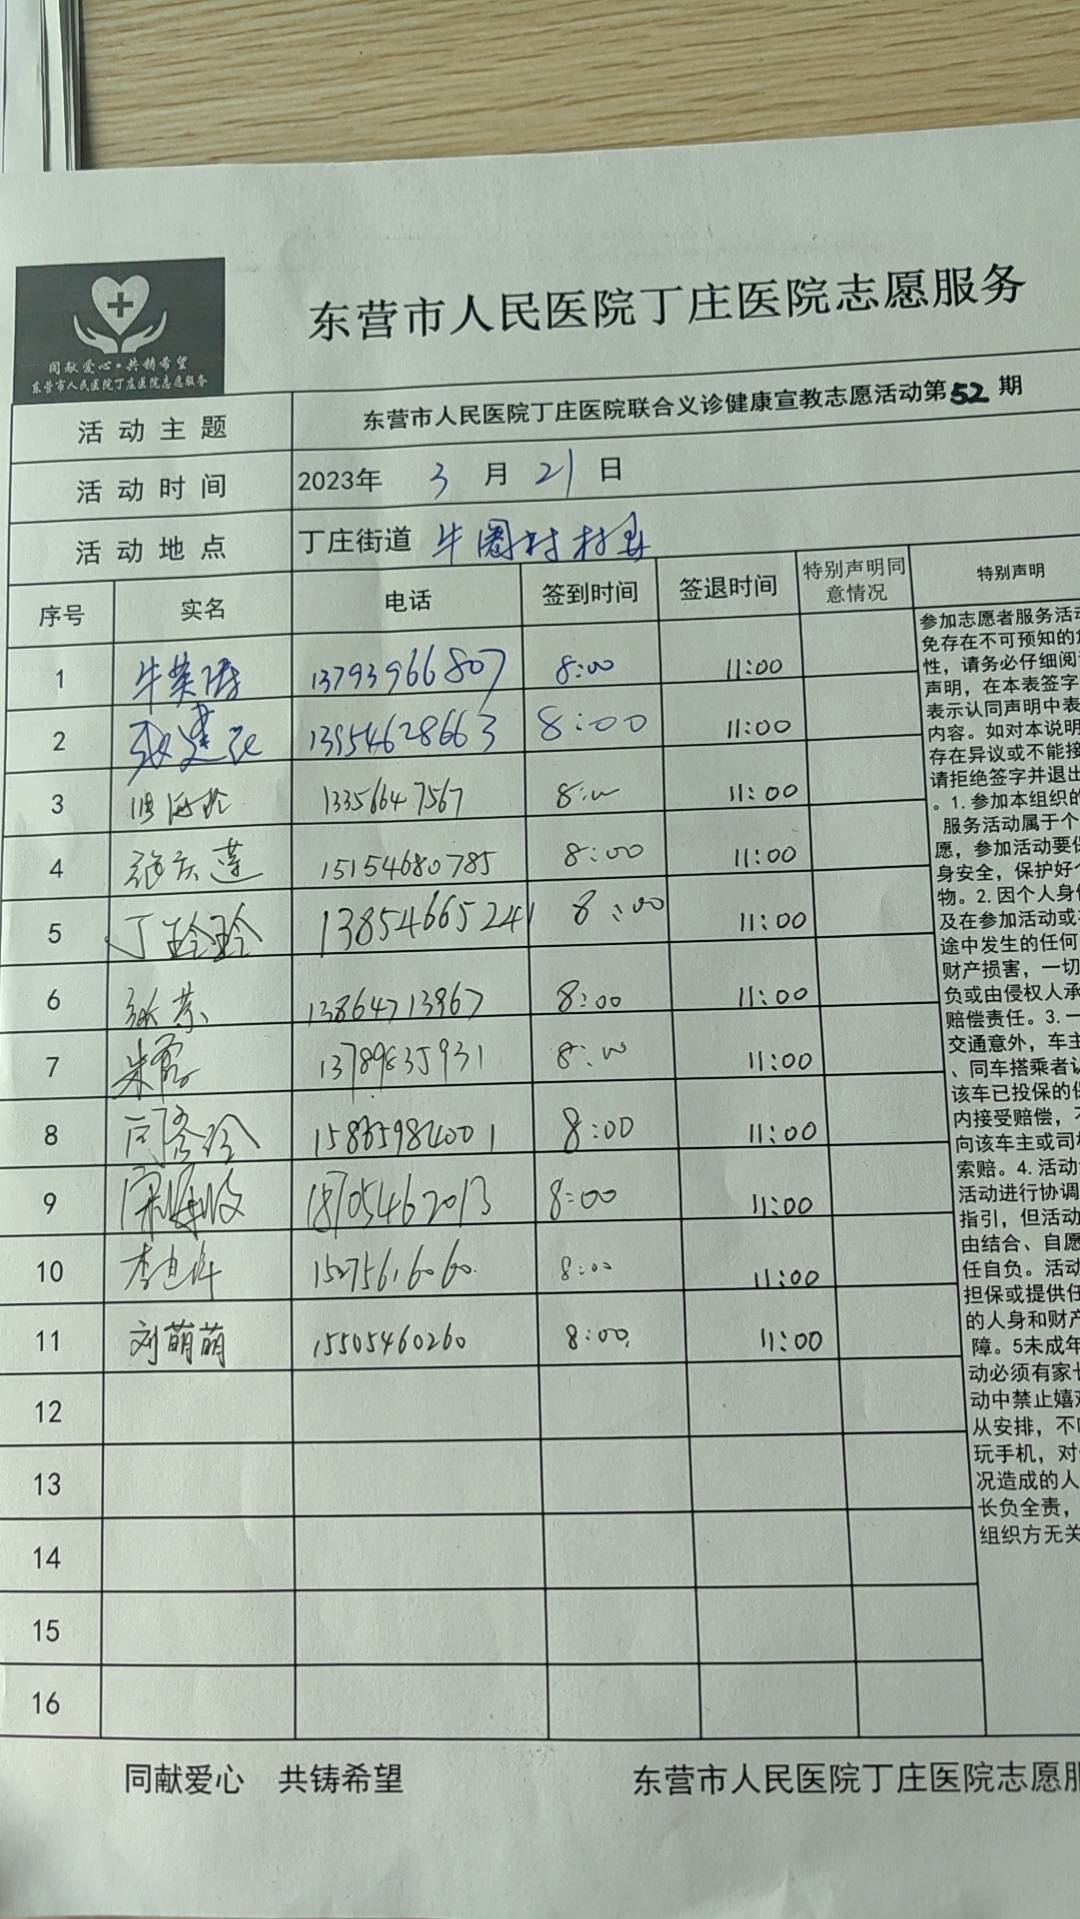 东营市人民医院丁庄医院志愿服务
同献爱心·共铸希望
东营市人民医院丁庄医院志愿服务
活动主题 东营市人民医院丁庄医院联合义诊健康宣教志愿活动第52期
活动时间 2023年 3月21日
活动地点 丁庄街道 牛圈村村
序号 实名 电话 签到时间 签退时间 特别声明同意情况 特别声明
1 牛英 13793966807 8:00 11:00
2 建 13954628663 8:00 11:00
3 13356647567 8:00 11:00
4 庆莲 15154680785 8:00 11:00
5 丁玲玲 13854665241 8:00 11:00
6 张 13864713967 8:00 11:00
7 朱霞 13789835931 8:00 11:00
8 8:00 11:00
9 宋 18705462013 8:00 11:00
10 李 8:00 11:00
11 刘萌萌 15505460260 8:00 11:00
12
13
14
15
16
参加志愿者服务活动
免存在不可预知的危
性，请务必仔细阅读
声明，在本表签字
表示认同声明中表
内容。如对本说明
存在异议或不能接
请拒绝签字并退出
。1.参加本组织的
服务活动属于个
愿，参加活动要保
身安全，保护好个
物。2.因个人身体
及在参加活动或
途中发生的任何
财产损害，一切
负或由侵权人承
赔偿责任。3.一
交通意外，车主
、同车搭乘者认
该车已投保的保
内接受赔偿，不
向该车主或司机
索赔。4.活动
活动进行协调
指引，但活动
由结合、自愿
任自负。活动
担保或提供任
的人身和财产
障。5未成年
动必须有家长
动中禁止嬉戏
从安排，不
玩手机，对
况造成的人
长负全责，
组织方无关
同献爱心 共铸希望 东营市人民医院丁庄医院志愿服